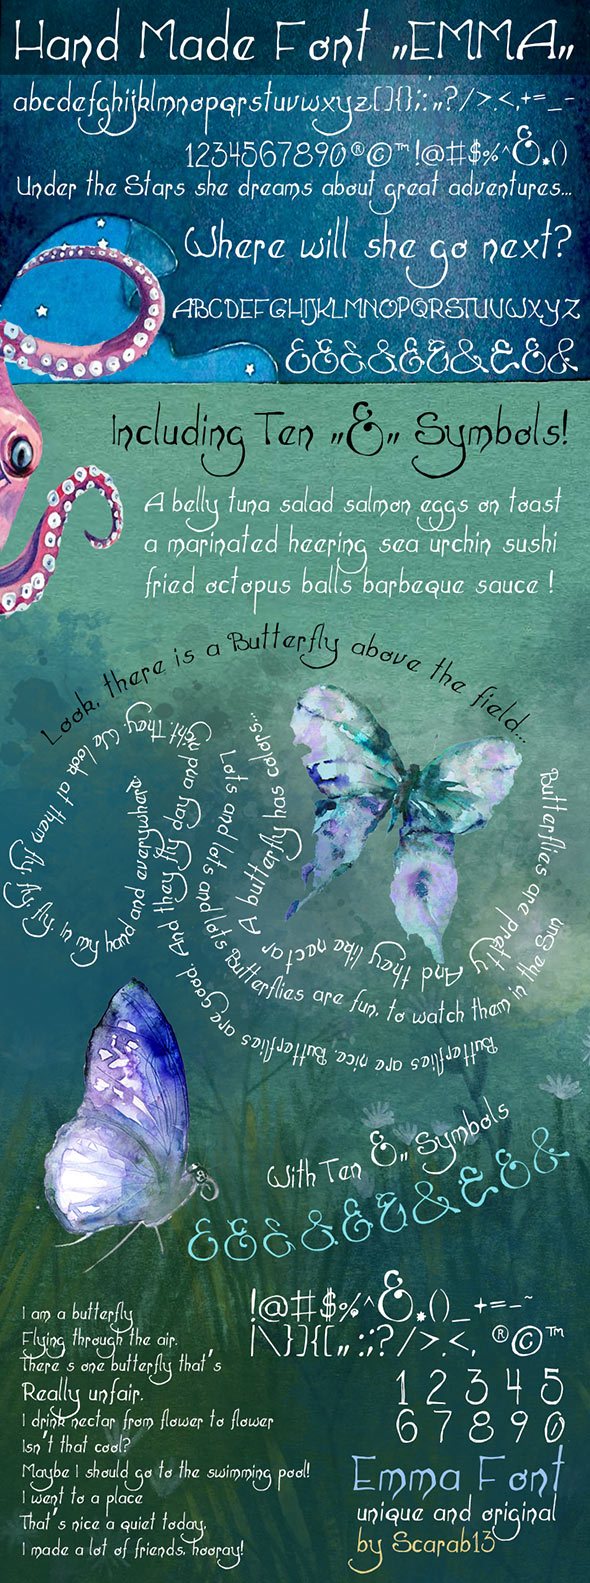 Hand Made Font „EMMA„
abcdefghijklmnopqrstuvwxyz[]{};:„?/>.<,+=_-
1234567890®©™!@#$%^&*()
Under the Stars she dreams about great adventures...
Where will she go next?
ABCDEFGHIJKLMNOPQRSTUVWXYZ
&&&&&&&&&&
Including Ten „&„ Symbols!
A belly tuna salad salmon eggs on toast
a marinated heering sea urchin sushi
fried octopus balls barbeque sauce !
Look, there is a Butterfly above the field...
Butterflies are pretty. And they like nectar. A butterfly has colors...
Lots and lots and lots of stripes. Butterflies are fun, to watch them in the sun.
Butterflies are nice, Butterflies are good. And they fly day and night. They. We look at them fly fly fly in my hand and everywhere.
With Ten &„ Symbols
&&&&&&&&&&
I am a butterfly
Flying through the air.
There s one butterfly that's
Really unfair.
I drink nectar from flower to flower
Isn't that cool?
Maybe I should go to the swimming pool!
I went to a place
That's nice a quiet today,
I made a lot of friends, hooray!
!@#$%^&*()_+=-~
|\}]{[„:;?/>.<, ®©™
1 2 3 4 5
6 7 8 9 0
Emma Font
unique and original
by Scarab13